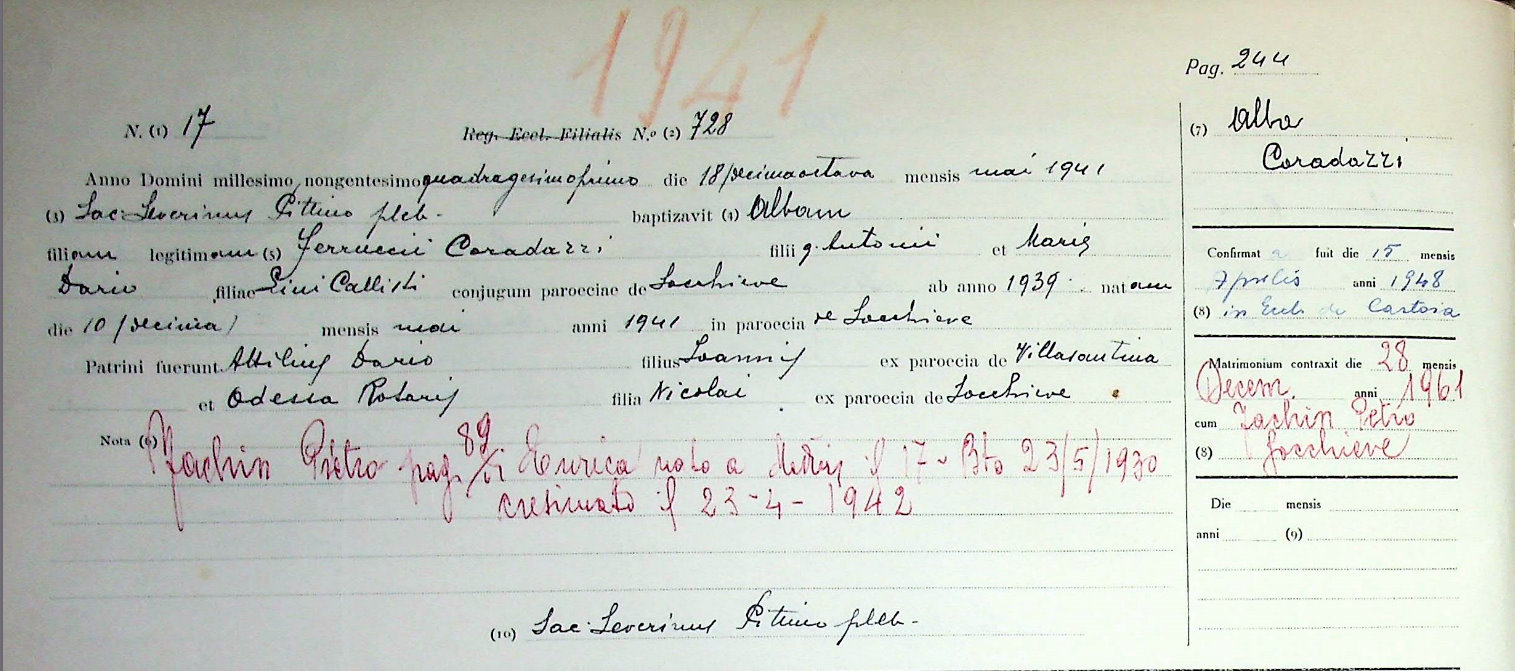 1941
Pag. 244
N. (1) 17 Reg. Eccl. Filialis N.o (2) 728
Anno Domini millesimo nongentesimo quadragesimoprimo die 18 (decimaoctava mensis mai 1941
(3) Sac. Severinus Pittino pleb. baptizavit (4) Albam
filiam legitimam (5) Ferruccii Coradazzi filii q. Antonii et Mariæ
Dario filiae Lini Callisti conjugum paroeciae de Socchieve ab anno 1939 natam
die 10 (decima) mensis mai anni 1941 in paroecia de Socchieve
Patrini fuerunt Attilius Dario filius Ioannis ex paroecia de Villasantina
et Odessa Rotaris filia Nicolai ex paroecia de Socchieve
Nota (6) Jachin Pietro pag. 89 di Enrica nato a il 17 - Bto 23/5/1930
cresimato il 23-4-1942
(10) Sac. Severinus Pittino pleb.
(7) Alba
Coradazzi
Confirmat a fuit die 15 mensis
Aprilis anni 1948
(8) in Eccl. de Castoia
Matrimonium contraxit die 28 mensis
Decem. anni 1961
cum Jachin Petro
(8) Socchieve
Die mensis
anni (9)